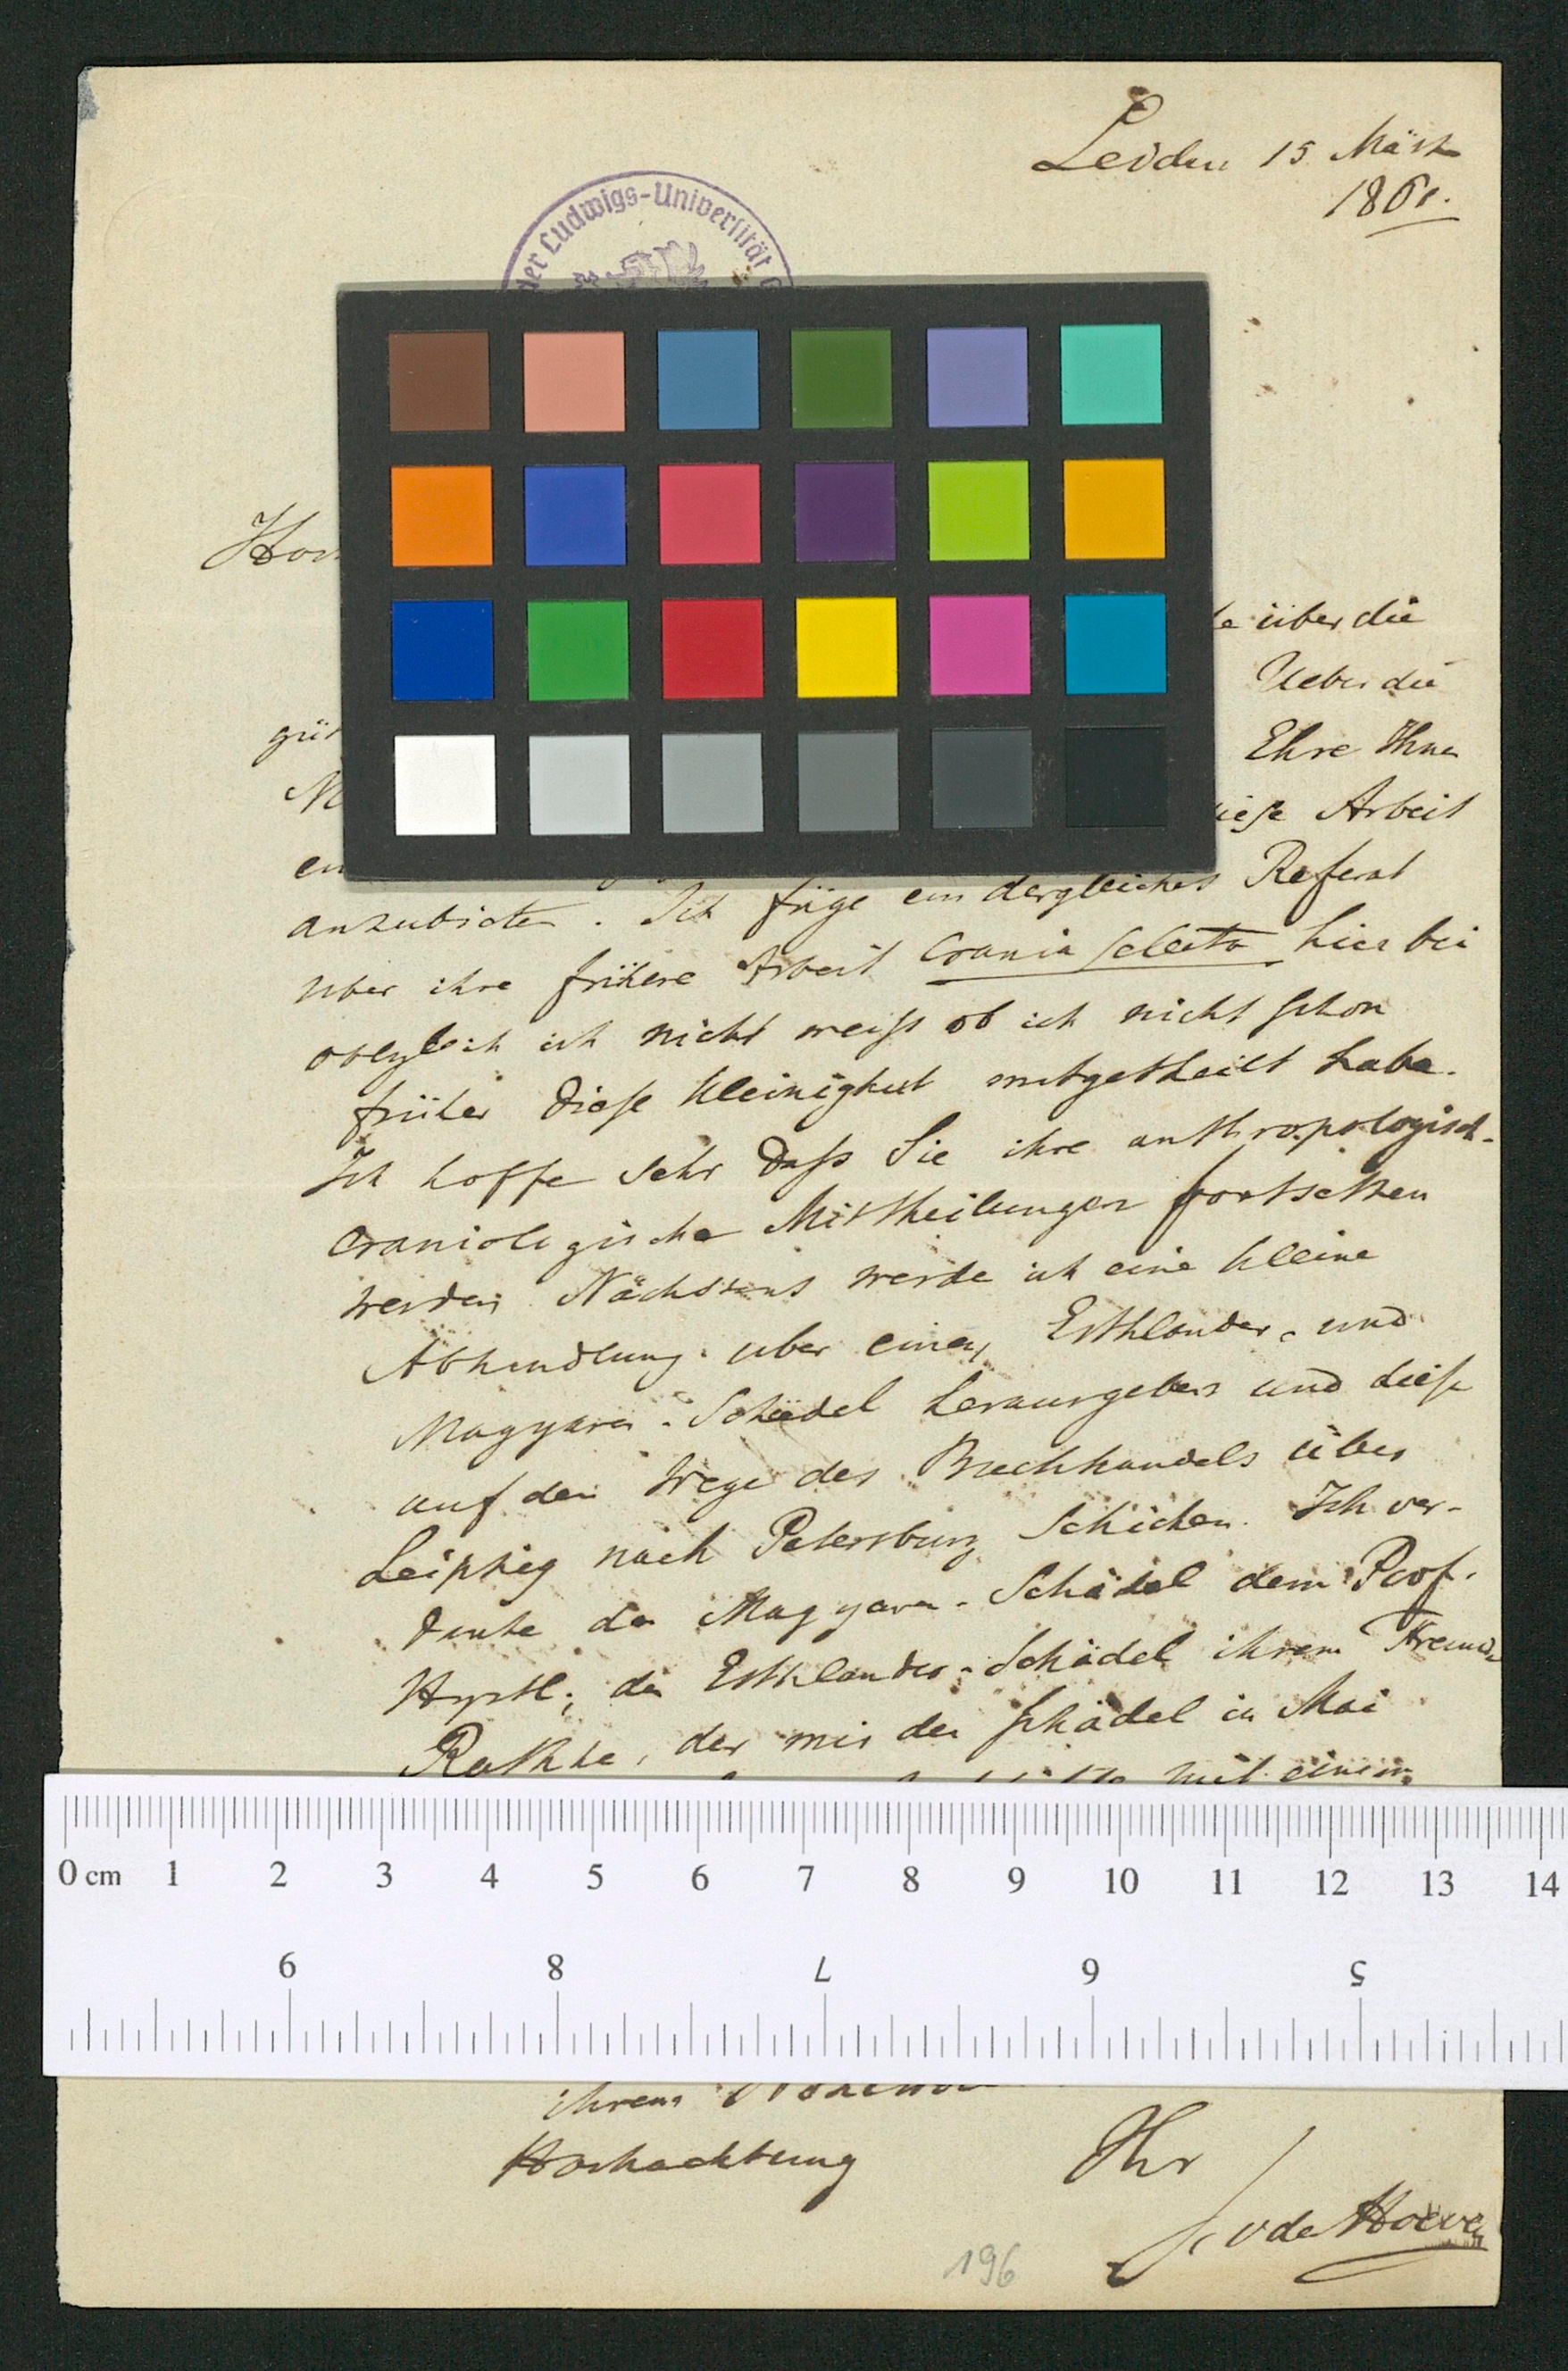 Leiden 15 März
1861.
der Ludwigs-Universität G
Hoch
le über die
Ueber die
güt
Ehre Ihnen
M
diese Arbeit
ein
anzubieten. Ich füge ein dergleiches Referat
uber ihre frühere Arbeit Crania selecta hier bei
obgleich ich nicht weiss ob ich nicht schon
früher diese Kleinigkeit mitgetheilt habe.
Ich hoffe sehr dass Sie ihre anthropologisch-
craniologische Mittheilungen fortsetzen
werden. Nächstens werde ich eine kleine
Abhandlung uber einen Esthlander- und
Magyaren-Schädel herausgeben und diese
auf den Wege des Buchhandels über
Leipzig nach Petersburg schicken. Ich ver-
danke den Magyaren-Schädel dem Prof.
Hyrtl; den Esthlander-Schädel ihrem Freunde
Rathke, der mir den Schädel in Mai
mit einem
0 cm 1 2 3 4 5 6 7 8 9 10 11 12 13 14
9 8 7 6 5
ihrem
Hochachtung Ihr
J. v de Hoeven
196